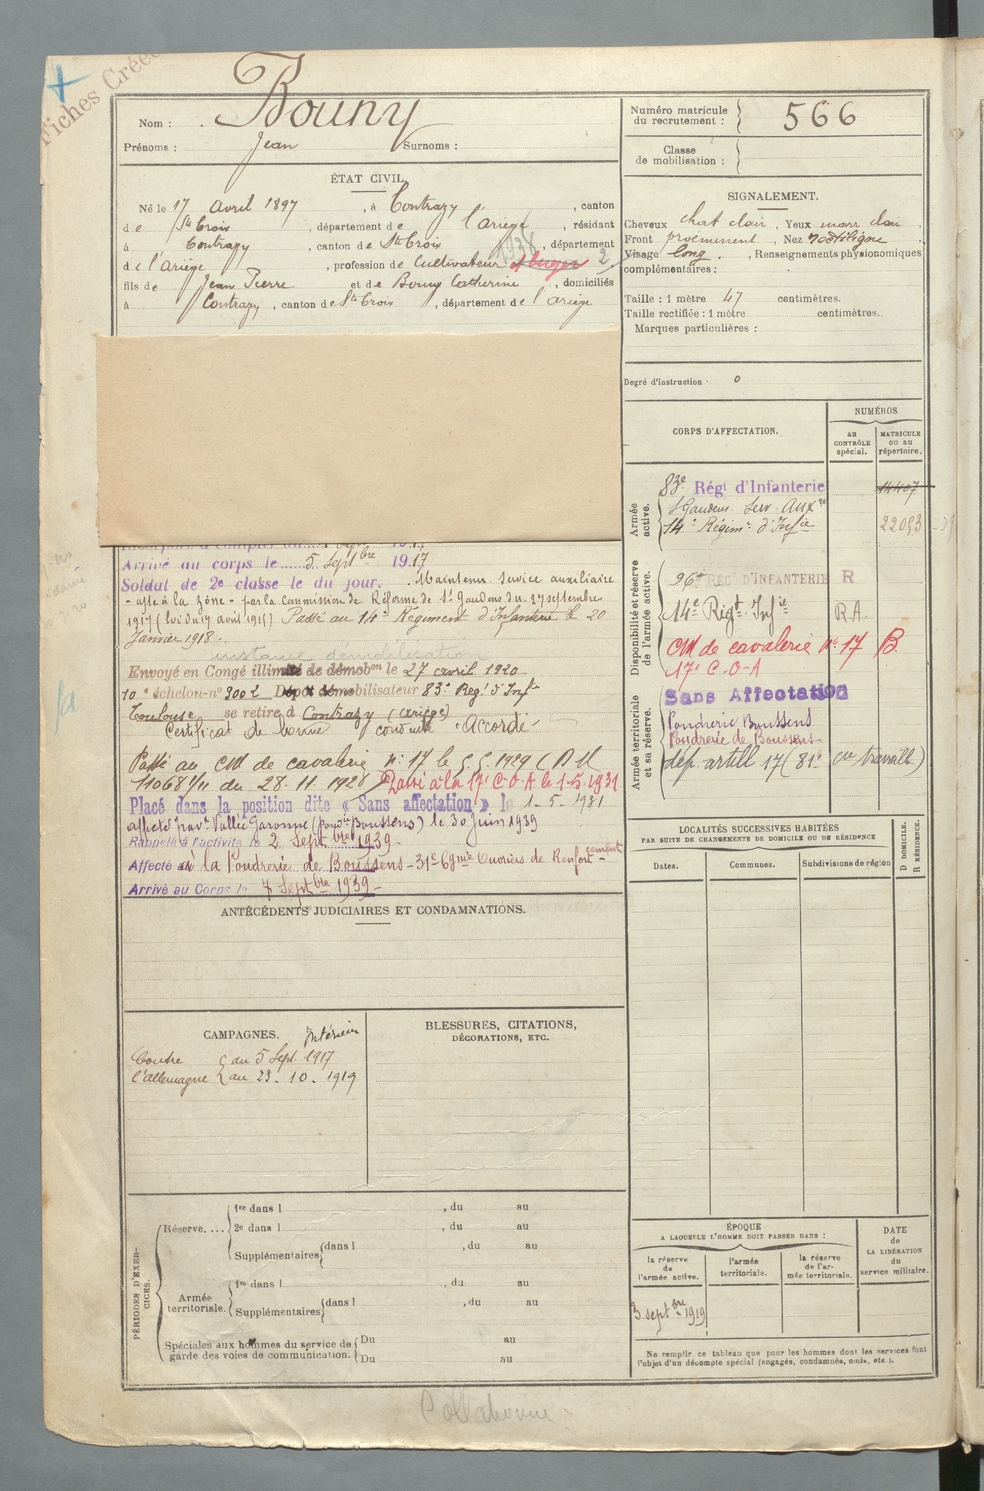 Fiches Créée
Nom : Bouny
Prénoms : Jean Surnoms :
Numéro matricule du recrutement : 566
Classe de mobilisation :
ÉTAT CIVIL.
Né le 17 avril 1897, à Contrazy, canton
de Ste Croix, département de l'ariège, résidant
à Contrazy, canton de Ste Croix, département
de l'ariège, profession de Cultivateur et berger
fils de Jean Pierre et de Bouny Catherine, domiciliés
à Contrazy, canton de Ste Croix, département de l'ariège
SIGNALEMENT.
Cheveux chat clair, Yeux marr clair
Front proéminent, Nez rectiligne
Visage long, Renseignements physionomiques
complémentaires :
Taille : 1 mètre 47 centimètres.
Taille rectifiée : 1 mètre centimètres.
Marques particulières :
Degré d'instruction · 0
CORPS D'AFFECTATION.
NUMÉROS
au CONTRÔLE spécial.
MATRICULE ou au répertoire.
Armée active.
83e Régt d'Infanterie
St Gaudens Serv. Auxre
14e Régimt d'Infie 22093
Disponibilité et réserve de l'armée active.
96e RÉGt D'INFANTERIE R
14e Régt Infie R.A.
CM de cavalerie no 17 B
17e C.O.A
Armée territoriale et sa réserve.
Sans Affectation
Poudrerie Boussens
Poudrerie de Boussens
dép. artill 17 (81e
Arrivé au corps le 5 Septbre 1917
Soldat de 2e classe le du jour. Maintenu Service auxiliaire
- apte à la zône - par la Commission de Réforme de St Gaudens du 27 septembre
1917 (loi du 17 avril 1915) Passé au 14e Régiment d'Infanterie le 20
Janvier 1918.
instance démobilisation
Envoyé en Congé illimité de démobon le 27 avril 1920
10e échelon no 9002 Dépôt démobilisateur 83e Régt d'Infie
Toulouse se retire à Contrazy (Ariège)
Certificat de bonne conduite "Accordé"
Passé au CM de cavalerie no 17 le 5.5.1929 (D.M
11068 1/11 du 28.11.1928) Passé à la 17e C.O.A le 1-5-1931
Placé dans la position dite « Sans affectation » le 1-5-1931
affecté Vallée Garonne (Boussens) le 30 Juin 1939
Rappelé à l'activité le 2 Septbre 1939
Affecté à la Poudrerie de Boussens - 31e Ouvriers de Renforcement
Arrivé au Corps le 7 Septbre 1939
ANTÉCÉDENTS JUDICIAIRES ET CONDAMNATIONS.
CAMPAGNES. Intérieur
Contre du 5 Sept. 1917
l'allemagne au 23.10.1919
BLESSURES, CITATIONS,
DÉCORATIONS, ETC.
LOCALITÉS SUCCESSIVES HABITÉES
PAR SUITE DE CHANGEMENTS DE DOMICILE OU DE RÉSIDENCE
Dates. Communes. Subdivisions de région
D DOMICILE. R RÉSIDENCE.
PÉRIODES D'EXERCICES.
Réserve.... 1re dans l , du au
2e dans l , du au
Supplémentaires dans l , du au
Armée territoriale. 1re dans l , du au
Supplémentaires dans l , du au
Spéciales aux hommes du service de Du au
garde des voies de communication. Du au
ÉPOQUE
A LAQUELLE L'HOMME DOIT PASSER DANS :
la réserve de l'armée active.
l'armée territoriale.
la réserve de l'armée territoriale.
DATE de LA LIBÉRATION du service militaire.
3 septbre 1919
Ne remplir ce tableau que pour les hommes dont les services font
l'objet d'un décompte spécial (engagés, condamnés, omis, etc.).